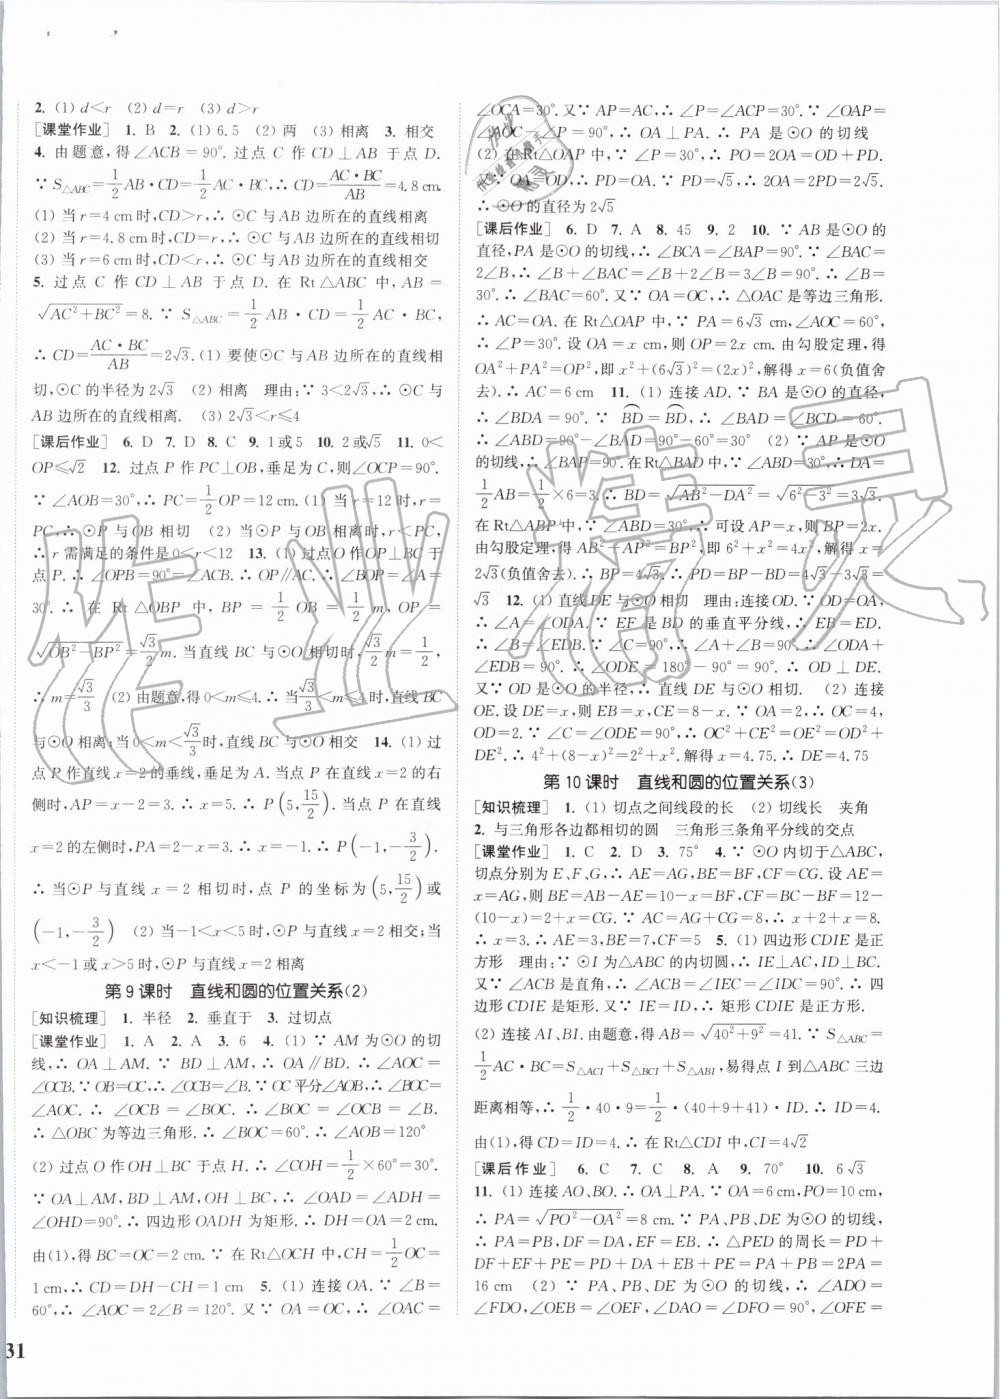 2. (1) d<r (2) d=r (3) d>r
[课堂作业] 1. B 2. (1) 6.5 (2) 两 (3) 相离 3. 相交
4. 由题意,得∠ACB=90°. 过点 C 作 CD⊥AB 于点 D.
∵ S△ABC=1/2AB·CD=1/2AC·BC,∴ CD=AC·BC/AB=4.8 cm.
(1) 当 r=4 cm时,CD>r,∴ ⊙C 与AB 边所在的直线相离
(2) 当 r=4.8 cm时,CD=r,∴ ⊙C 与AB 边所在的直线相切
(3) 当 r=6 cm时,CD<r,∴ ⊙C 与AB 边所在的直线相交
5. 过点 C 作 CD⊥AB 于点 D. 在 Rt△ABC 中,AB=
√(AC²+BC²)=8. ∵ S△ABC=1/2AB·CD=1/2AC·BC,
∴ CD=AC·BC/AB=2√3.(1) 要使⊙C与AB边所在的直线相
切,⊙C 的半径为 2√3 (2) 相离 理由:∵ 3<2√3,∴ ⊙C 与
AB 边所在的直线相离. (3) 2√3<r≤4
[课后作业] 6. D 7. D 8. C 9. 1或5 10. 2或√5 11. 0<
OP≤√2 12. 过点 P 作 PC⊥OB,垂足为 C,则∠OCP=90°.
∵ ∠AOB=30°,∴ PC=1/2OP=12 cm. (1) 当 r=12 cm时,
r=PC,∴ ⊙P 与 OB 相切 (2) 当⊙P与OB 相离时,r<PC,
∴ r 需满足的条件是 0<r<12 13. (1) 过点 O 作 OP⊥BC 于
点 P.∴ ∠OPB=90°=∠ACB.∴ OP∥AC.∴ ∠BOP=∠A=
30°. ∴ 在 Rt△OBP 中, BP=1/2OB=1/2m, OP=
√(OB²-BP²)=√3/2m. 当直线 BC 与⊙O 相切时,OP=√3/2m=1/2,
∴ m=√3/3 (2) 由题意,得 0<m≤4. ∴ 当√3/3<m≤4时,直线 BC
与⊙O 相离;当 0<m<√3/3时,直线 BC 与⊙O 相交 14. (1) 过
点 P 作直线 x=2 的垂线,垂足为 A. 当点 P 在直线 x=2 的右
侧时,AP=x-2=3. ∴ x=5. ∴ P(5,15/2). 当点 P 在直线
x=2 的左侧时,PA=2-x=3. ∴ x=-1. ∴ P(-1,-3/2).
∴ 当⊙P 与直线 x=2 相切时,点 P 的坐标为(5,15/2)或
(-1,-3/2) (2) 当-1<x<5时,⊙P 与直线 x=2 相交;当
x<-1 或 x>5 时,⊙P 与直线 x=2 相离
第 9 课时 直线和圆的位置关系(2)
[知识梳理] 1. 半径 2. 垂直于 3. 过切点
[课堂作业] 1. A 2. A 3. 6 4. (1) ∵ AM 为⊙O 的切
线,∴ OA⊥AM. ∵ BD⊥AM,∴ OA∥BD. ∴ ∠AOC=
∠OCB. ∵ OB=OC,∴ ∠OCB=∠B. ∵ OC平分∠AOB,∴ ∠BOC=
∠AOC. ∴ ∠OCB=∠BOC. ∴ ∠BOC=∠OCB=∠B.
∴ △OBC 为等边三角形.∴ ∠BOC=60°.∴ ∠AOB=120°
(2) 过点 O 作 OH⊥BC 于点 H. ∴ ∠COH=1/2×60°=30°.
∵ OA⊥AM, BD⊥AM, OH⊥BC, ∴ ∠OAD=∠ADH=
∠OHD=90°. ∴ 四边形 OADH 为矩形. ∴ DH=OA=2 cm.
由(1),得 BC=OC=2 cm. ∵ 在 Rt△OCH 中,CH=1/2OC=
1 cm,∴ CD=DH-CH=1 cm 5. (1) 连接 OA. ∵ ∠B=
60°,∴ ∠AOC=2∠B=120°. 又∵ OA=OC,∴ ∠OAC=
31
∠OCA=30°. 又∵ AP=AC,∴ ∠P=∠ACP=30°. ∴ ∠OAP=
∠AOC-∠P=90°,∴ OA⊥PA. ∴ PA 是⊙O 的切线
(2) 在 Rt△OAP 中,∵ ∠P=30°,∴ PO=2OA=OD+PD.
∵ OA=OD,∴ PD=OA. ∵ PD=√5,∴ 2OA=2PD=2√5.
∴ ⊙O 的直径为 2√5
[课后作业] 6. D 7. A 8. 45 9. 2 10. ∵ AB 是⊙O 的
直径,PA 是⊙O 的切线,∴ ∠BCA=∠BAP=90°. ∵ ∠BAC=
2∠B,∴ ∠B+∠BAC=∠B+2∠B=3∠B=90°. ∴ ∠B=
30°.∴ ∠BAC=60°. 又∵ OA=OC,∴ △OAC 是等边三角形.
∴ AC=OA. 在 Rt△OAP 中,∵ PA=6√3 cm,∠AOC=60°,
∴ ∠P=30°. 设 OA=x cm,则 OP=2x cm. 由勾股定理,得
OA²+PA²=OP²,即 x²+(6√3)²=(2x)²,解得 x=6(负值舍
去).∴ AC=6 cm 11. (1) 连接 AD. ∵ BA 是⊙O 的直径,
∴ ∠BDA=90°. ∵ BD=BD,∴ ∠BAD=∠BCD=60°.
∴ ∠ABD=90°-∠BAD=90°-60°=30° (2) ∵ AP 是⊙O
的切线,∴ ∠BAP=90°. 在 Rt△BAD中,∵ ∠ABD=30°,∴ DA=
1/2AB=1/2×6=3. ∴ BD=√(AB²-DA²)=√(6²-3²)=3√3.
在 Rt△ABP 中,∵ ∠ABD=30°,∴ 可设 AP=x,则 BP=2x.
由勾股定理,得 AB²+AP²=BP²,即 6²+x²=4x²,解得 x=
2√3(负值舍去).∴ BP=4√3.∴ PD=BP-BD=4√3-3√3=
√3 12. (1) 直线DE与⊙O相切 理由:连接OD. ∵ OD=OA,
∴ ∠A=∠ODA. ∵ EF 是 BD 的垂直平分线,∴ EB=ED.
∴ ∠B=∠EDB. ∵ ∠C=90°,∴ ∠A+∠B=90°. ∴ ∠ODA+
∠EDB=90°. ∴ ∠ODE=180°-90°=90°. ∴ OD⊥DE.
又∵ OD 是⊙O 的半径,∴ 直线 DE 与⊙O 相切. (2) 连接
OE. 设 DE=x,则 EB=x,CE=8-x. ∵ OA=2,∴ OC=4,
OD=2. ∵ ∠C=∠ODE=90°,∴ OC²+CE²=OE²=OD²+
DE².∴ 4²+(8-x)²=2²+x². 解得 x=4.75. ∴ DE=4.75
第 10 课时 直线和圆的位置关系(3)
[知识梳理] 1. (1) 切点之间线段的长 (2) 切线长 夹角
2. 与三角形各边都相切的圆 三角形三条角平分线的交点
[课堂作业] 1. C 2. D 3. 75° 4. ∵ ⊙O 内切于△ABC,
切点分别为 E、F、G,∴ AE=AG,BE=BF,CF=CG. 设 AE=
x=AG,则 BE=AB-AE=10-x=BF,CF=BC-BF=12-
(10-x)=2+x=CG. ∵ AC=AG+CG=8,∴ x+2+x=8.
∴ x=3. ∴ AE=3,BE=7,CF=5 5. (1) 四边形 CDIE 是正
方形 理由:∵ ⊙I 为△ABC 的内切圆,∴ IE⊥AC,ID⊥BC.
又∵ ∠ACB 是直角,∴ ∠ACB=∠IEC=∠IDC=90°. ∴ 四
边形 CDIE 是矩形. 又∵ IE=ID,∴ 矩形 CDIE 是正方形.
(2) 连接 AI、BI. 由题意,得 AB=√(40²+9²)=41. ∵ S△ABC=
1/2AC·BC=S△ACI+S△BCI+S△ABI,易得点 I 到△ABC 三边
距离相等,∴ 1/2·40·9=1/2·(40+9+41)·ID. ∴ ID=4.
由(1),得 CD=ID=4. ∴ 在 Rt△CDI 中,CI=4√2
[课后作业] 6. C 7. C 8. A 9. 70° 10. 6√3
11. (1) 连接 AO、BO. ∴ OA⊥PA. ∵ OA=6 cm,PO=10 cm,
∴ PA=√(PO²-OA²)=8 cm. ∵ PA、PB、DE 为⊙O 的切线,
∴ PA=PB, AD=DF, EF=EB. ∴ △PED 的周长=PD+
DF+EF+PE=PD+DA+EB+PE=PA+PB=2PA=
16 cm (2) ∵ PA、PB、DE 为⊙O 的切线,∴ ∠ADO=
∠FDO, ∠BOE=∠OEF, ∠DAO=∠DFO=90°, ∠OFE=
作业精灵